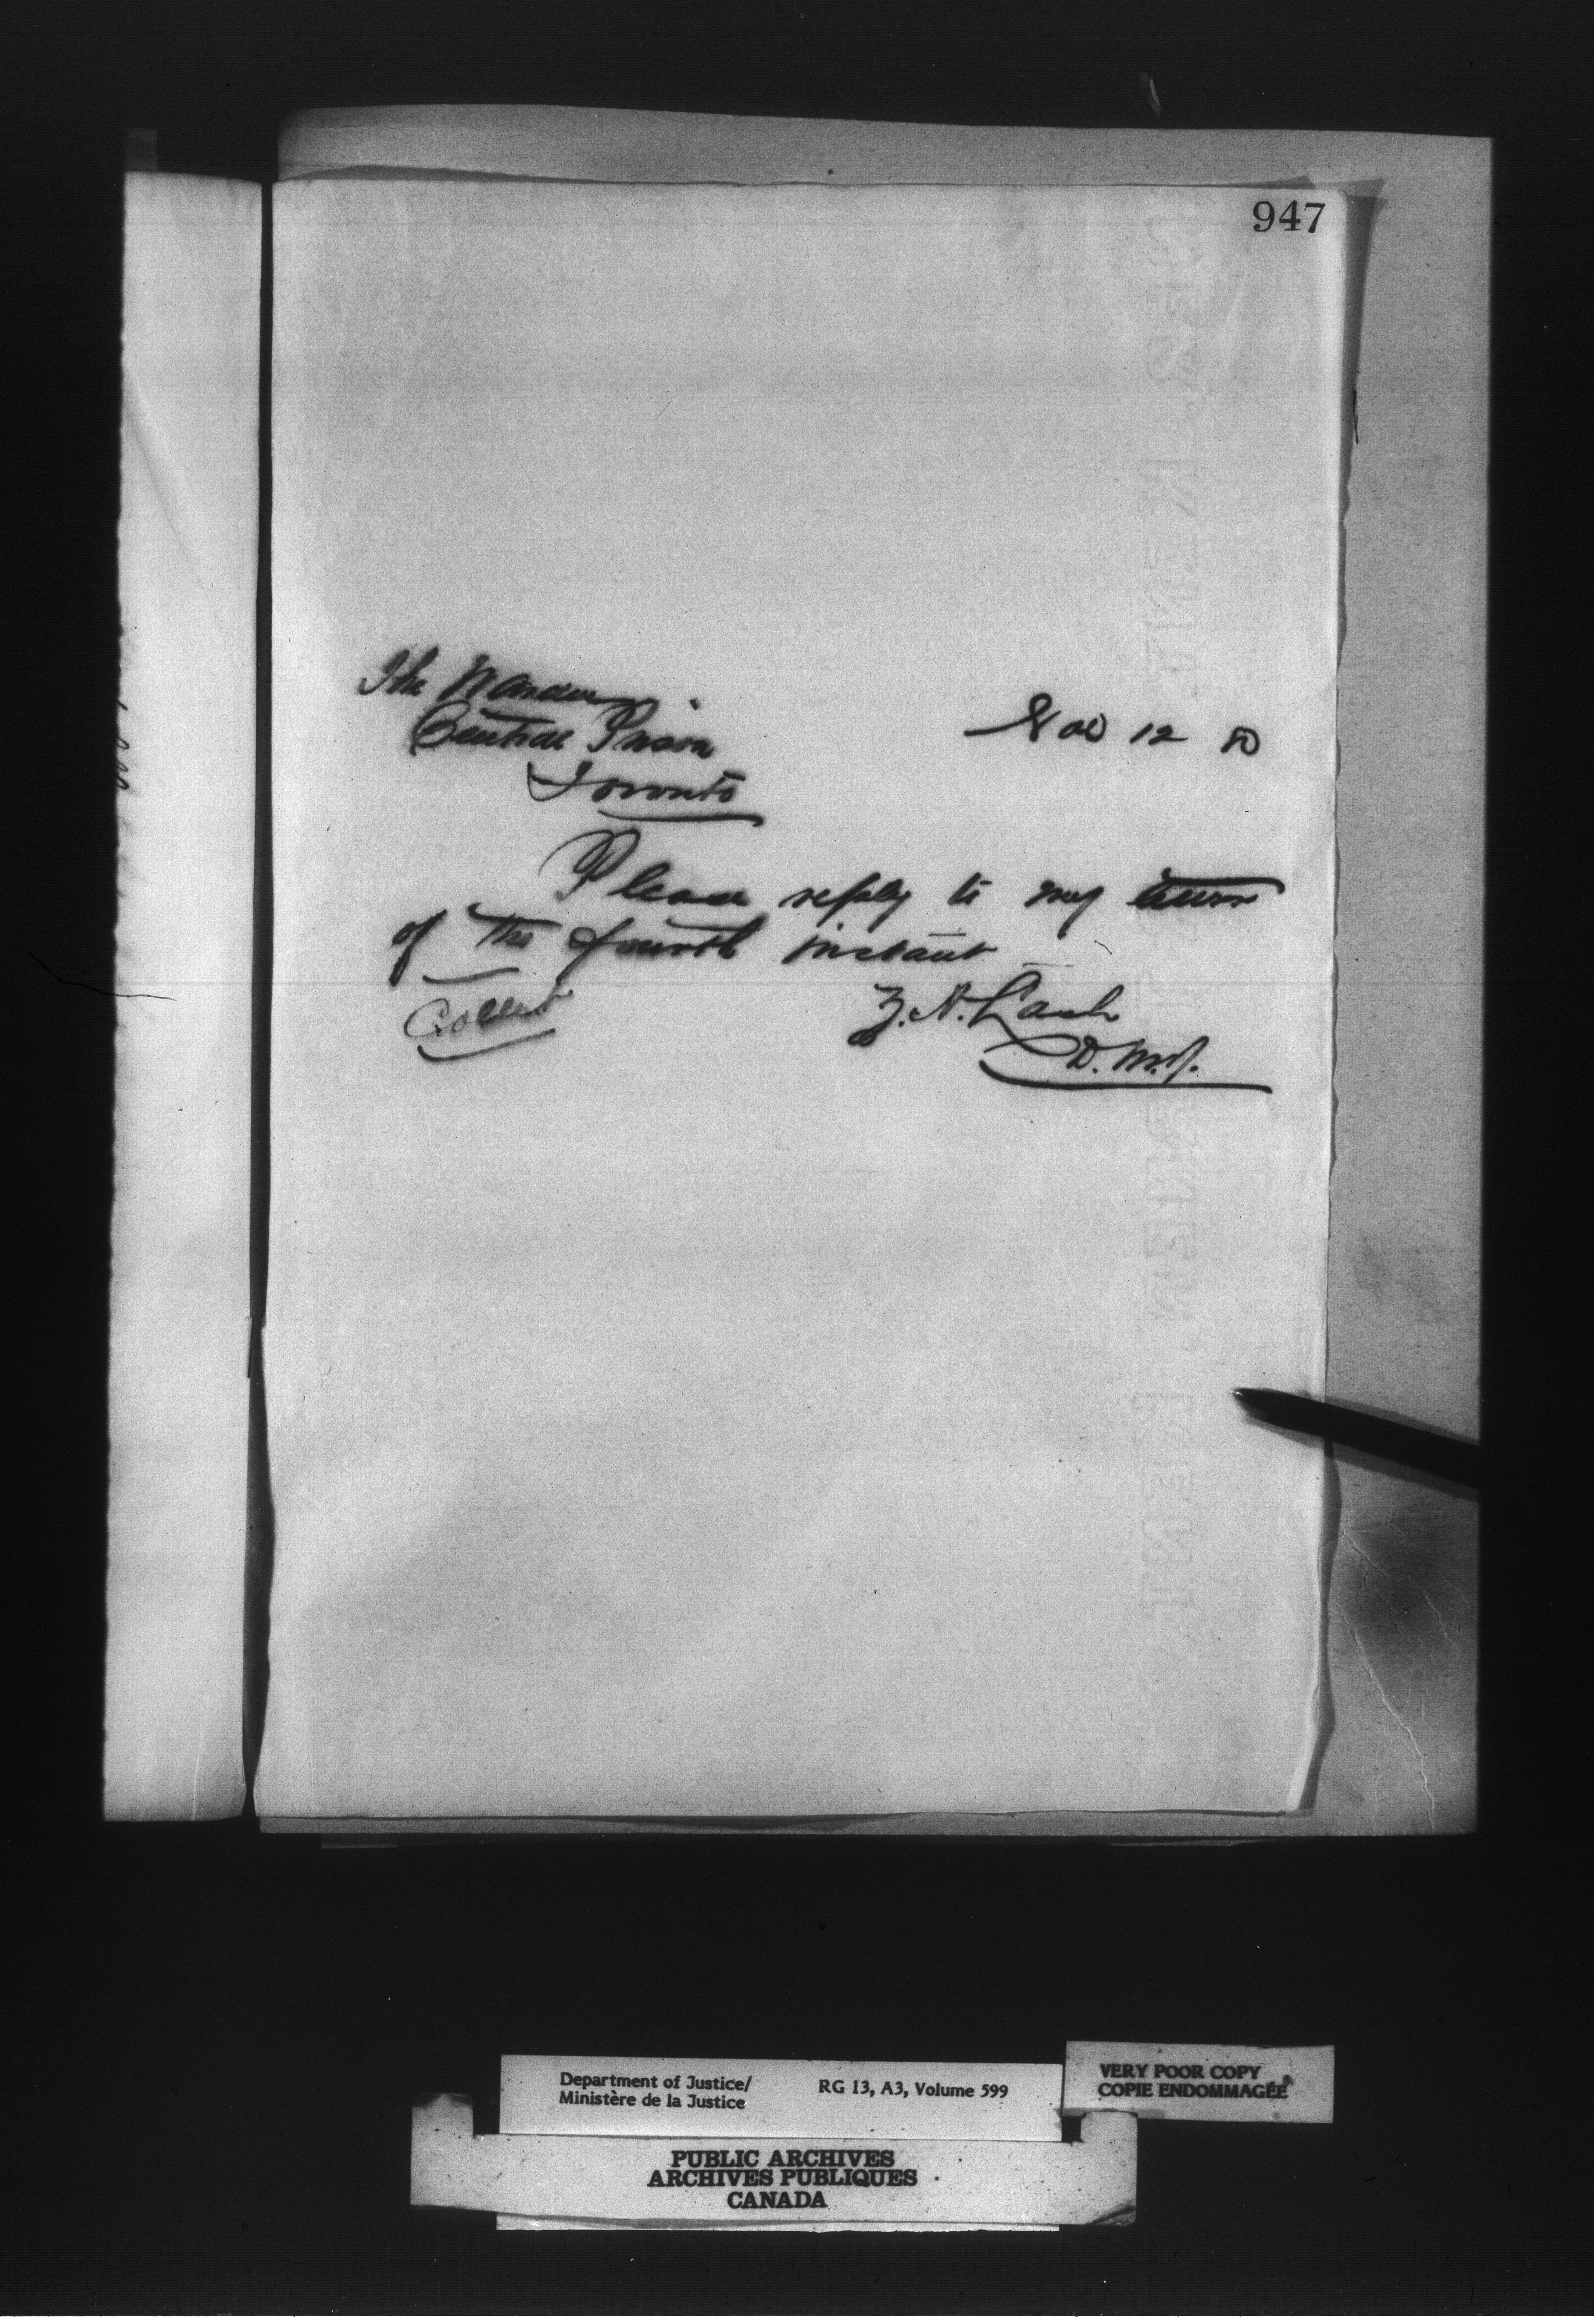 947
The Warden
Central Prison
Toronto
Nov 12 80
Please reply to my
of the fourth instant
Collect
Z. A. Lash
D. M. J.
Department of Justice/
Ministère de la Justice
RG 13, A3, Volume 599
VERY POOR COPY
COPIE ENDOMMAGÉE
PUBLIC ARCHIVES
ARCHIVES PUBLIQUES
CANADA